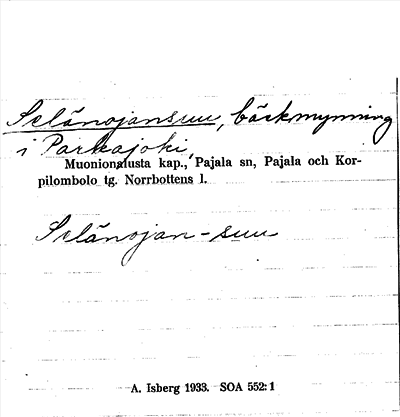 Selänojansuu, bäckmynning
i Parkajoki,
Muonionalusta kap., Pajala sn, Pajala och Kor-
pilombolo tg. Norrbottens l.
Selänojan-suu
A. Isberg 1933. SOA 552:1